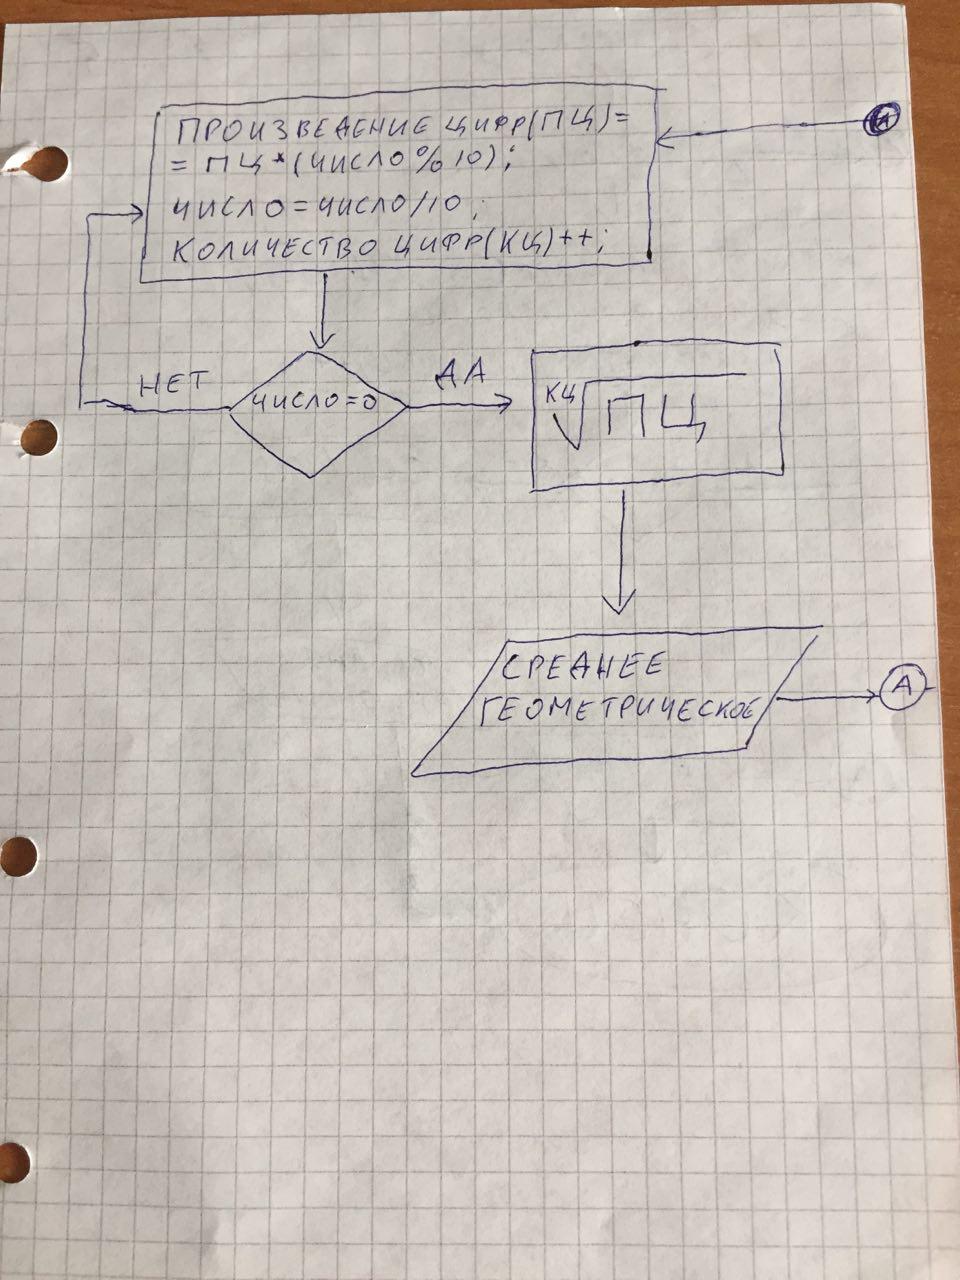 ПРОИЗВЕДЕНИЕ ЦИФР(ПЦ)=
= ПЦ*(ЧИСЛО%10);
ЧИСЛО=ЧИСЛО/10;
КОЛИЧЕСТВО ЦИФР(КЦ)++;
НЕТ
ЧИСЛО=0
ДА
КЦ√ПЦ
СРЕДНЕЕ
ГЕОМЕТРИЧЕСКОЕ
А